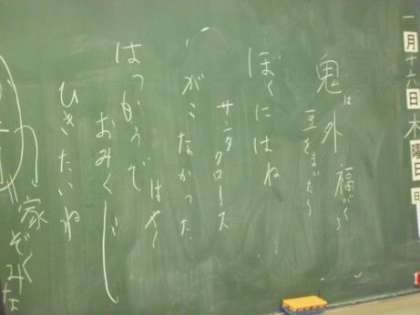 一月十六日木曜日
鬼は外 福は
豆をまいたら
ぼくにはね
サンタクロース
がこなかった
はつもうで
はやく
おみくじ
ひきたいね
家ぞくみな